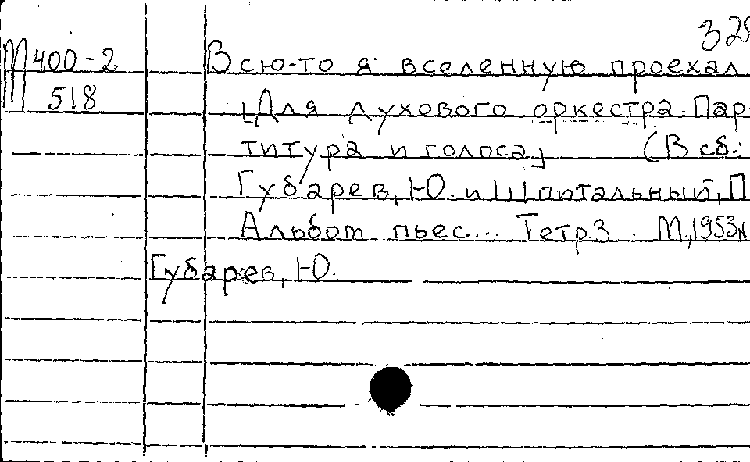 329
М400-2 Всю-то я вселенную проехал
518 [Для духового оркестра. Пар
титура и голоса] (В сб.:
Губарев, Ю. и Шпитальный, П
Альбом пьес... Тетр 3. М, 1953
Губарев, Ю.